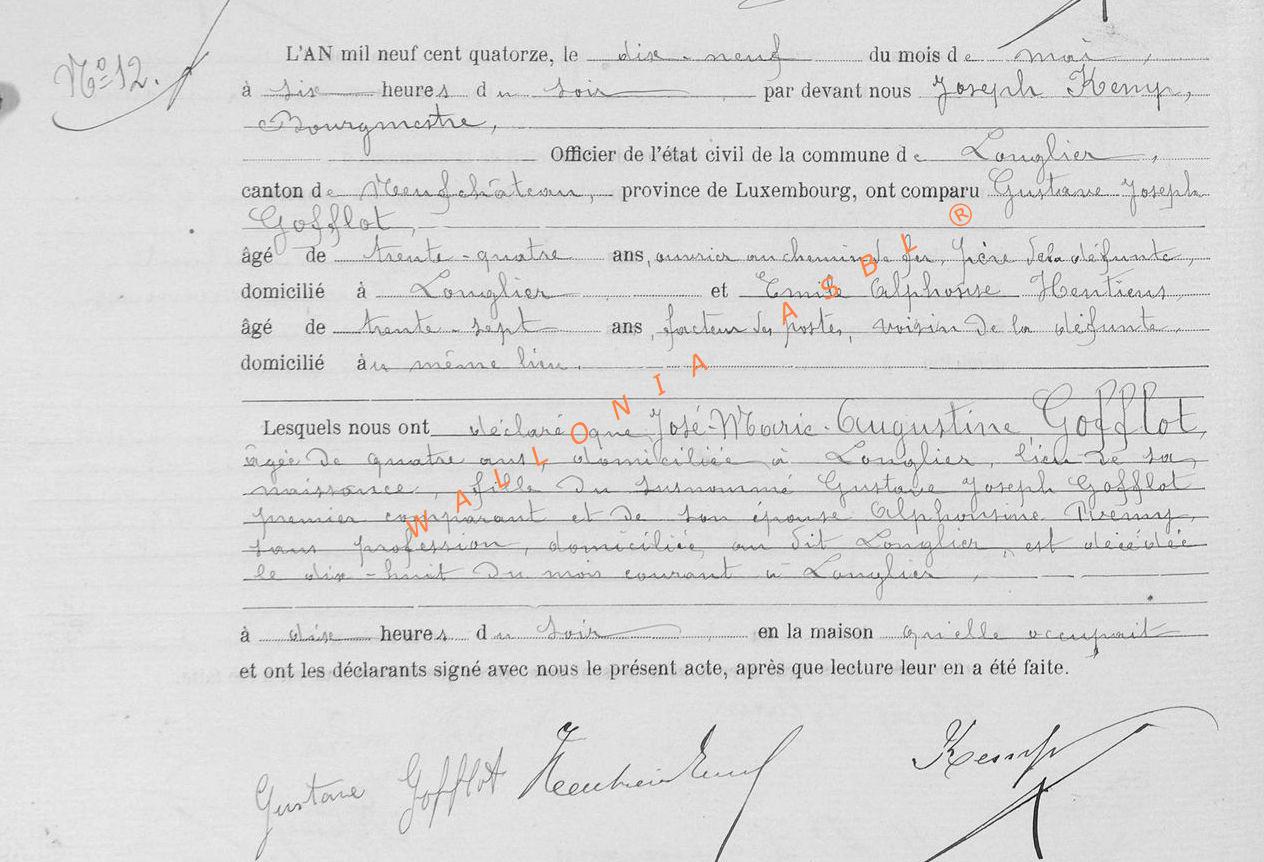 N° 12.
L'AN mil neuf cent quatorze, le dix-neuf du mois de mai,
à six heures du soir par devant nous Joseph Kemp,
Bourgmestre,
Officier de l'état civil de la commune de Longlier,
canton de Neufchâteau, province de Luxembourg, ont comparu Gustave Joseph
Gofflot,
âgé de trente-quatre ans, ouvrier au chemin de fer, père de la défunte,
domicilié à Longlier et Emile Alphonse Hentiens
âgé de trente-sept ans, facteur des postes, voisin de la défunte
domicilié au même lieu.
Lesquels nous ont déclaré que José-Marie-Augustine Gofflot,
âgée de quatre ans, domiciliée à Longlier, lieu de sa
naissance, fille du susnommé Gustave Joseph Gofflot
premier comparant et de son épouse Alphonsine
sans profession, domiciliée au dit Longlier, est décédée
le dix-huit du mois courant à Longlier,
à dix heures du soir en la maison qu'elle occupait
et ont les déclarants signé avec nous le présent acte, après que lecture leur en a été faite.
Gustave Gofflot Kemp
WALLONIA ASBL ®